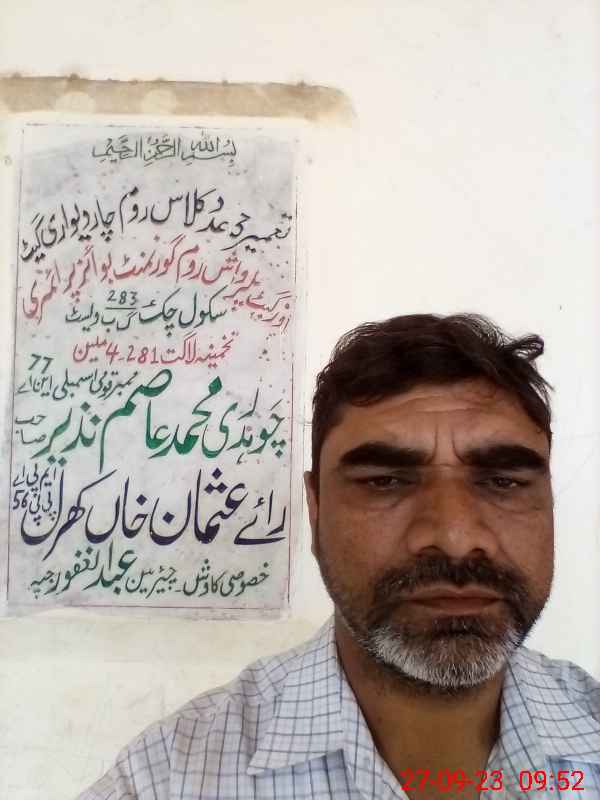 بسم اللہ الرحمن الرحیم
تعمیر عدد کلاس روم چار دیواری گیٹ
اور واش روم گورنمنٹ بوائز پرائمری
سکول چک 283 گ ب ویسٹ
تخمینہ لاگت 4.281 ملین
ممبر قومی اسمبلی این اے 77
چوہدری محمد عاصم نذیر صاحب
رائے عثمان خاں کھرل ایم پی اے پی پی 56
خصوصی کاوش۔ چیئرمین عبدالغفور جپہ
27-09-23 09:52